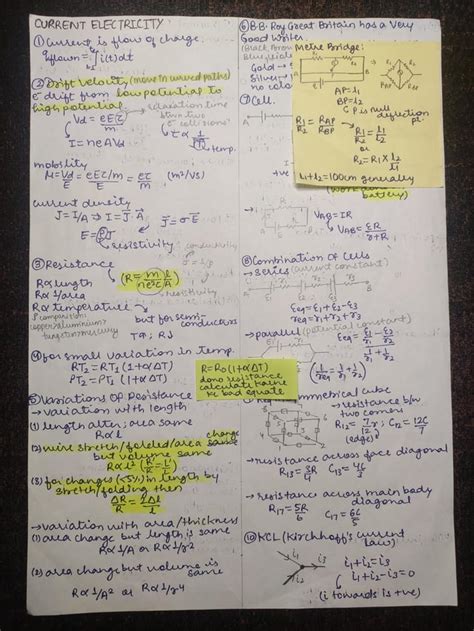 CURRENT ELECTRICITY
① Current is flow of charge.
qflown = ∫ i(t)dt
② Drift Velocity (move in curved paths)
e⁻ drift from low potential to
high potential
relaxation time
b/w two
e⁻ collisions
Vd = eEτ/m
τ α 1/√temp.
I = neAVd
mobility
μ = Vd/E = eEτ/m/E = eτ/m (m²/Vs)
current density
J = I/A ⇒ I = J.A
J = σE
E = ρJ
conductivity
resistivity
③ Resistance
(R = m/ne²τ l/A)
R α length
R α 1/area
resistivity
R α temperature
but for semi-
conductors
T↑; R↓
④ for small variation in temp.
RT2 = RT1 (1+αΔT)
ρT2 = ρT1 (1+αΔT)
R = R0(1+αΔT)
dono resistance
calculate karne
ke bad equate
⑤ Variations of Resistance
→ variation with length
(1) length alter; area same
R α l
(2) wire stretch/folded/area change
but volume same
R α l²
(3) for changes (<5%) in length by
stretch/folding then
ΔR/R = 2Δl/l
→ variation with area/thickness
(1) area change but length is same
R α 1/A or R α 1/r²
(2) area change but volume is
same
R α 1/A² or R α 1/r⁴
⑥ B.B. Roy Great Britain has a Very
Good Writer.
Gold →
Silver →
no colo
Metre Bridge:
A B
P
RAP RBP
AP = l1
BP = l2
C P is null
deflection
pt.
R1/R2 = RAP/RBP ⇒ R1/R2 = l1/l2
or
R2 = R1 X l2/l1
l1+l2 = 100cm generally
⑦ Cell.
battery)
VAB = IR
VAB = ER/r+R
⑧ Combination of Cells
→ series (current constant)
εeq = ε1+ε2-ε3
req = r1+r2+r3
→ parallel (potential constant)
εeq = ε1/r1+ε2/r2
1/r1+1/r2
(1/req = 1/r1+1/r2)
symmetrical cube
→ resistance b/w
two corners
R12 = 7r/12; C12 = 12C/7
(edge)
→ resistance across face diagonal
→ resistance across main body
diagonal
R17 = 5R/6
⑩ KCL (Kirchhoff's current
law)
i1 i3
i2
i1+i2 = i3
i1+i2-i3 = 0
(i towards is +ve)